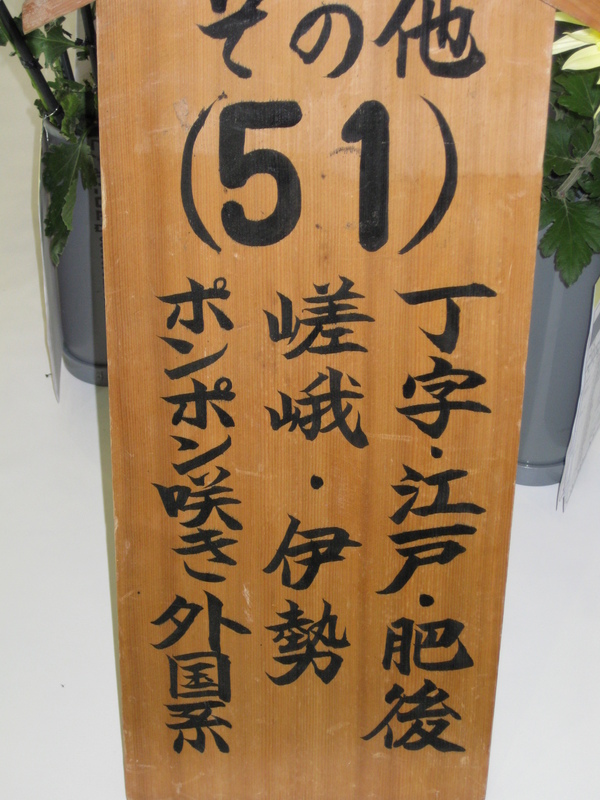 その他
(51)
丁字・江戸・肥後
嵯峨・伊勢
ポンポン咲き 外国系